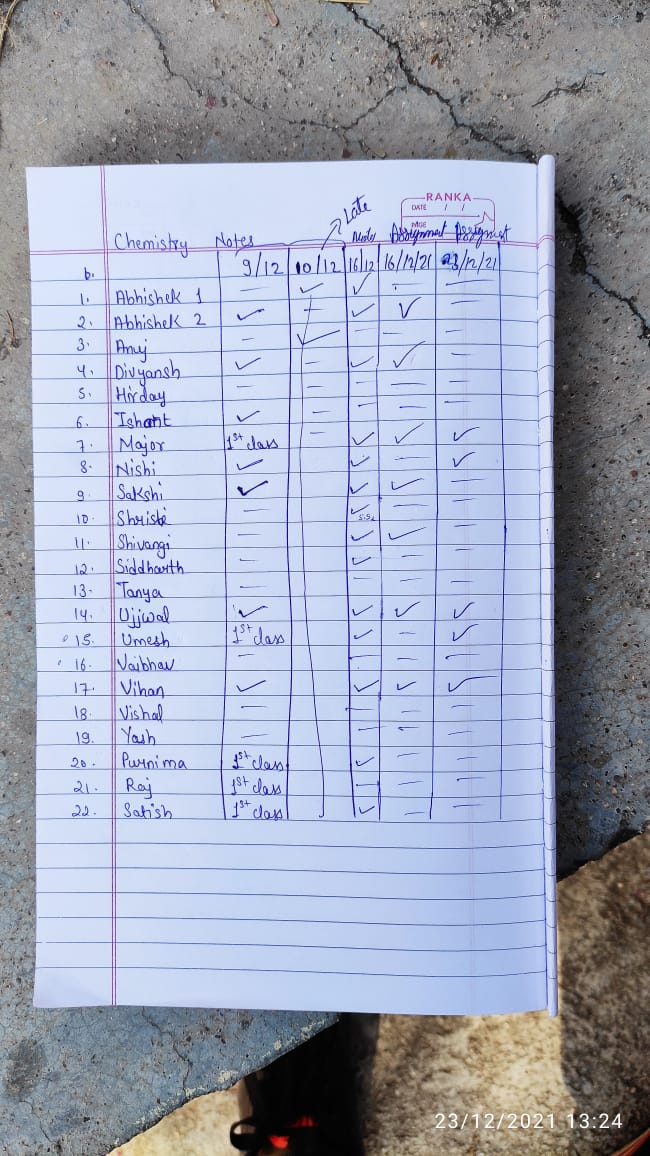 RANKA
DATE / /
PAGE
Late
Chemistry Notes Notes Assignment Assignment
9/12 10/12 16/12 16/12/21 23/12/21
1. Abhishek 1 — ✓ ✓ — —
2. Abhishek 2 ✓ — ✓ ✓ —
3. Anuj — ✓ — — —
4. Divyansh ✓ — ✓ ✓ —
5. Hirday — — — — —
6. Ishant ✓ — — — —
7. Major 1st class — ✓ ✓ ✓
8. Nishi ✓ ✓ — ✓
9. Sakshi ✓ ✓ ✓ —
10. — ✓ — —
11. Shivangi — ✓ ✓ —
12. Siddharth — ✓ — —
13. Tanya — — — —
14. Ujjwal ✓ ✓ ✓ ✓
15. Umesh 1st class ✓ — ✓
16. Vaibhav — — — —
17. Vihan ✓ ✓ ✓ ✓
18. Vishal — — — —
19. Yash — — — —
20. Purnima 1st class ✓ — —
21. Raj 1st class — — —
22. Satish 1st class ✓ — —
23/12/2021 13:24